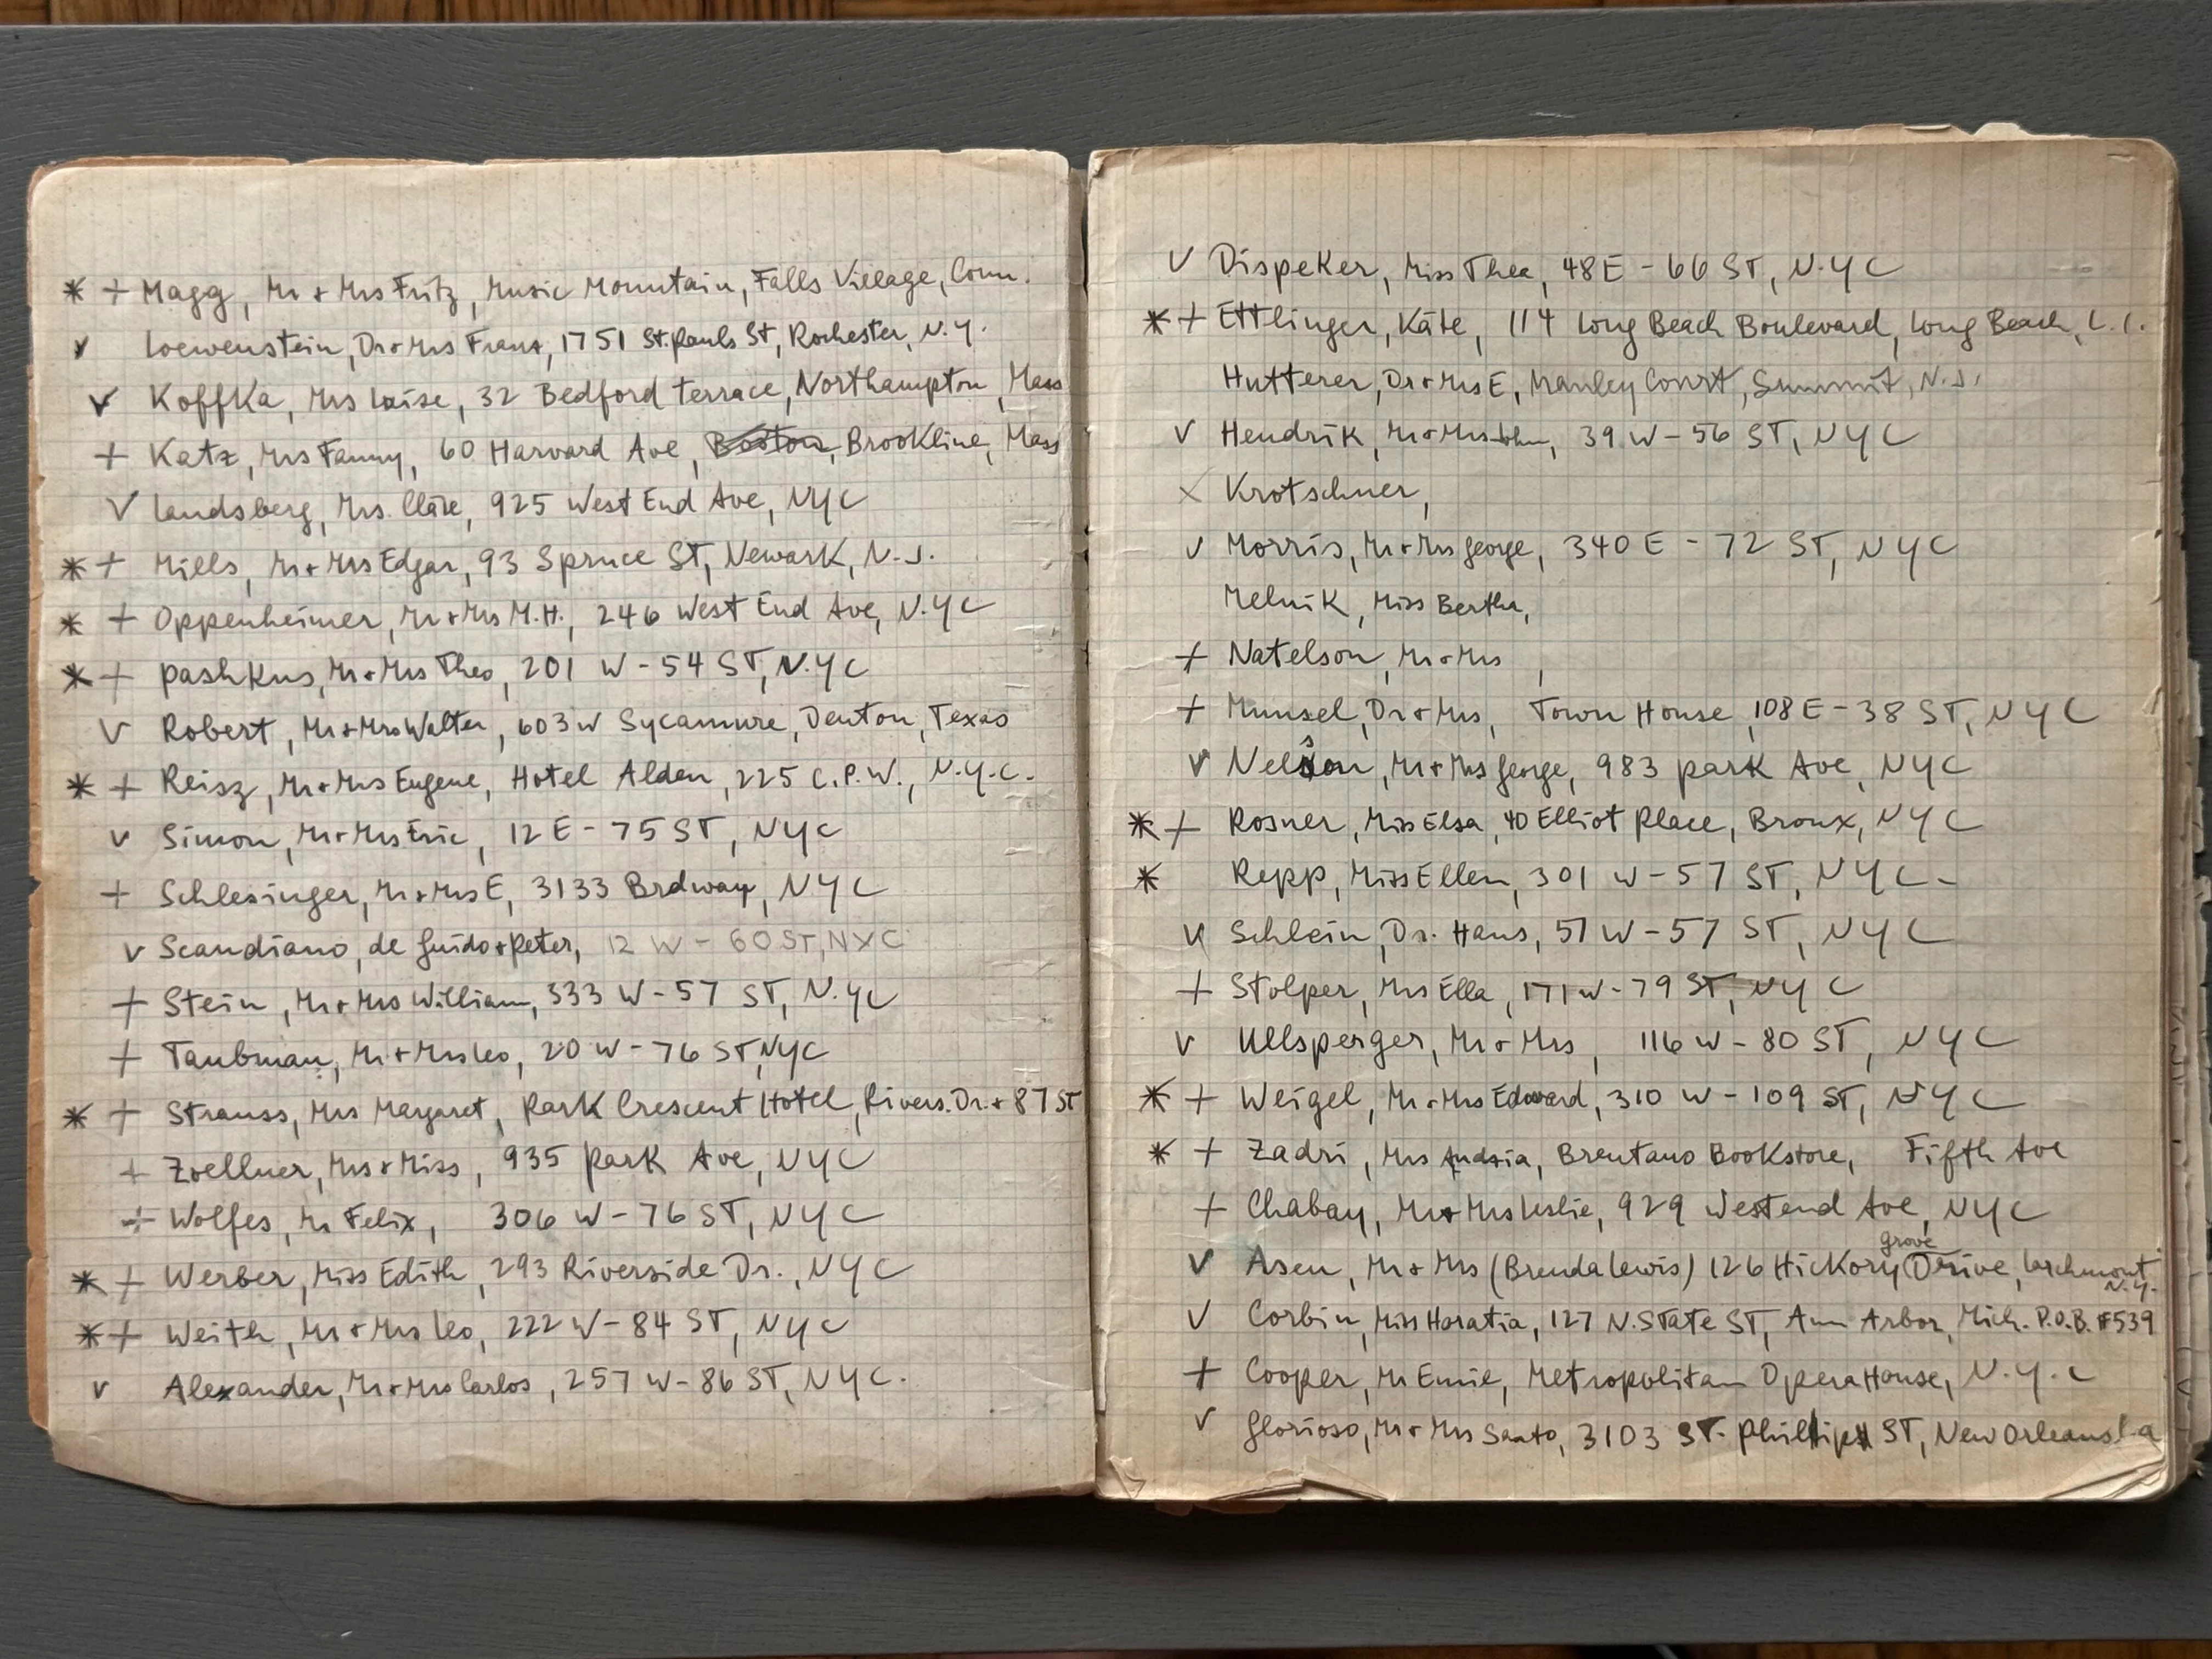 * + Magg, Mr + Mrs Fritz, Music Mountain, Falls Village, Conn.
v Loewenstein, Dr + Mrs Franz, 1751 St. Pauls St, Rochester, N.Y.
v Koffka, Mrs Luise, 32 Bedford terrace, Northampton, Mass
+ Katz, Mrs Fanny, 60 Harvard Ave, Boston, Brookline, Mass
v Landsberg, Mrs. Cläre, 925 West End Ave, NYC
* + Mills, Mr + Mrs Edgar, 93 Spruce ST, Newark, N.J.
* + Oppenheimer, Mr + Mrs M.H., 246 West End Ave, N.YC
* + Pashkus, Mr + Mrs Theo, 201 W-54 ST, N.YC
v Robert, Mr + Mrs Walter, 603 W Sycamure, Denton, Texas
* + Reisz, Mr + Mrs Eugene, Hotel Alden, 225 C.P.W., N.Y.C.
v Simon, Mr + Mrs Eric, 12 E-75 ST, NYC
+ Schlesinger, Mr + Mrs E, 3133 Brdway, NYC
v Scandiano, de Guido + Peter, 12 W - 60 ST, NYC
+ Stein, Mr + Mrs William, 333 W-57 ST, N.YC
+ Taubman, Mr + Mrs Leo, 20 W-76 ST, NYC
* + Strauss, Mrs Margaret, Park Crescent Hotel, Rivers. Dr. + 87 ST
+ Zoellner, Mrs + Miss, 935 Park Ave, NYC
+ Wolfes, Mr Felix, 306 W-76 ST, NYC
* + Werber, Miss Edith, 293 Riverside Dr., NYC
* + Weith, Mr + Mrs Leo, 222 W-84 ST, NYC
v Alexander, Mr + Mrs Carlos, 257 W-86 ST, NYC.
v Dispeker, Miss Thea, 48 E-66 ST, N.YC
* + Ettlinger, Käte, 114 Long Beach Boulevard, Long Beach, L.I.
Hutterer, Dr + Mrs E, Manley Court, Summit, N.J.
v Hendrik, Mr + Mrs John, 39 W-56 ST, NYC
x Krotschner,
v Morris, Mr + Mrs George, 340 E - 72 ST, NYC
Melnik, Miss Bertha,
+ Natelson, Mr + Mrs ,
+ Munsel, Dr + Mrs, Town House, 108 E-38 ST, NYC
v Nelson, Mr + Mrs George, 983 Park Ave, NYC
* + Rosner, Miss Elsa, 40 Elliot Place, Bronx, NYC
* Repp, Miss Ellen, 301 W-57 ST, NYC-
v Schlein, Dr. Hans, 57 W-57 ST, NYC
+ Stolper, Mrs Ella, 171 W-79 ST, NYC
v Ullsperger, Mr + Mrs, 116 W-80 ST, NYC
* + Weigel, Mr + Mrs Edward, 310 W-109 ST, NYC
* + Zadri, Mrs Andria, Brentano Bookstore, Fifth Ave
+ Chabay, Mr + Mrs Leslie, 929 Westend Ave, NYC
v Asen, Mr + Mrs (Brenda Lewis) 126 Hickory grove Drive, Larchmont N.Y.
v Corbin, Miss Haratia, 127 N. State ST, Ann Arbor, Mich. P.O.B. #539
+ Cooper, Mr Emie, Metropolitan Opera House, N.Y.C
v Glorioso, Mr + Mrs Santo, 3103 ST. Phillip ST, New Orleans La